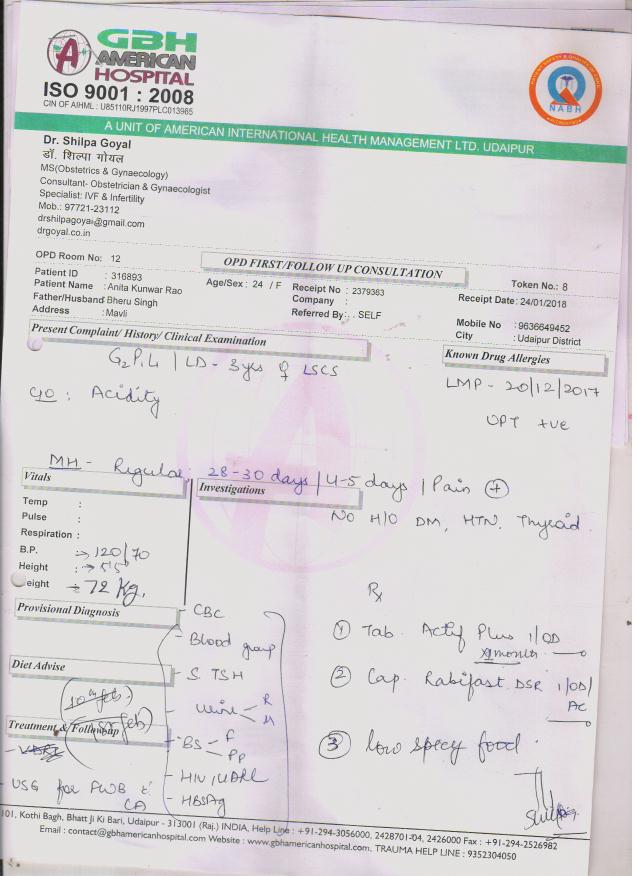 GBH
AMERICAN
HOSPITAL
ISO 9001 : 2008
CIN OF AIHML : U85110RJ1997PLC013965
NABH
A UNIT OF AMERICAN INTERNATIONAL HEALTH MANAGEMENT LTD. UDAIPUR
Dr. Shilpa Goyal
डॉ. शिल्पा गोयल
MS(Obstetrics & Gynaecology)
Consultant- Obstetrician & Gynaecologist
Specialist: IVF & Infertility
Mob.: 97721-23112
drshilpagoyal@gmail.com
drgoyal.co.in
OPD Room No: 12
OPD FIRST/FOLLOW UP CONSULTATION
Token No.: 8
Patient ID : 316893
Age/Sex : 24 / F
Receipt No : 2379363
Receipt Date: 24/01/2018
Patient Name : Anita Kunwar Rao
Company :
Father/Husband Bheru Singh
Referred By: . SELF
Mobile No : 9636649452
Address : Mavli
City : Udaipur District
Present Complaint/ History/ Clinical Examination
Known Drug Allergies
G2P1L1 | LD - 3yrs LSCS
LMP - 20/12/2017
C/O : Acidity
UPT +ve
MH - Regular, 28-30 days | 4-5 days | Pain +
Vitals
Investigations
No H/O DM, HTN, Thyroid.
Temp :
Pulse :
Respiration :
B.P. 120/70
Height : 5'5"
eight 72 Kg.
Rx
Provisional Diagnosis
CBC
① Tab. Actif Plus 1/OD
Blood group
Diet Advise
S. TSH
② Cap. Rabifast DSR 1/OD/
AC
10th feb
Urine R
M
Treatment & Followup
BS - F
PP
③ low spicy food.
VDRL
HIV / VDRL
USG for FWB &
CA
HBsAg
101, Kothi Bagh, Bhatt Ji Ki Bari, Udaipur - 313001 (Raj.) INDIA, Help Line : +91-294-3056000, 2428701-04, 2426000 Fax : +91-294-2526982
Email : contact@gbhamericanhospital.com Website : www.gbhamericanhospital.com, TRAUMA HELP LINE : 9352304050